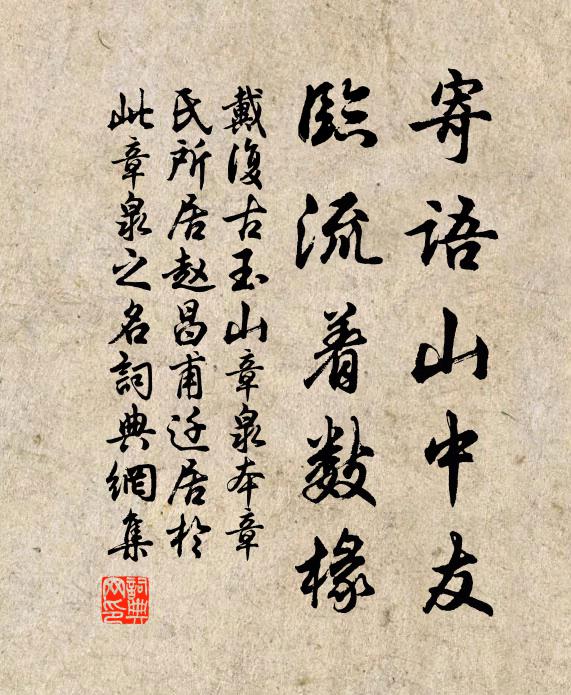 寄语山中友
臨流着数椽
戴復古玉山章泉本章
氏所居赵昌甫迁居於
此章泉之名詞典網集
詞典
网印